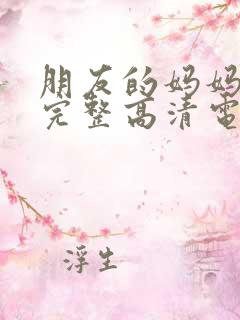 朋友的妈妈
完整高清电
浮生